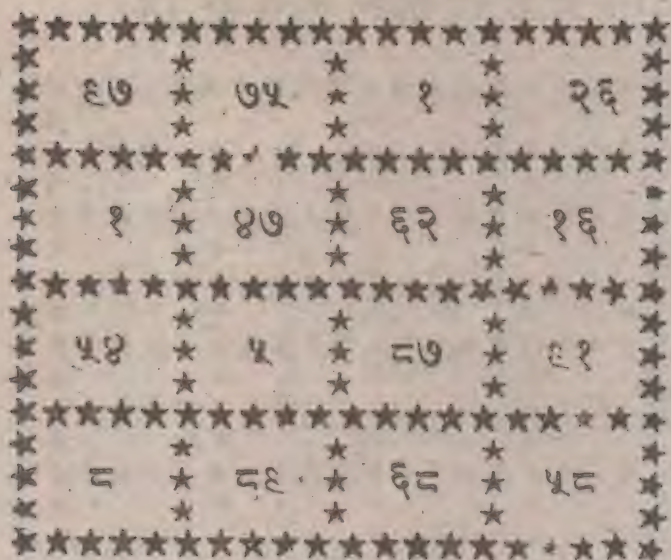 ९७ ७५ १ २६
१ ४७ ६२ १६
५४ ५ ८७ ९१
८ ८९ ६८ ५८